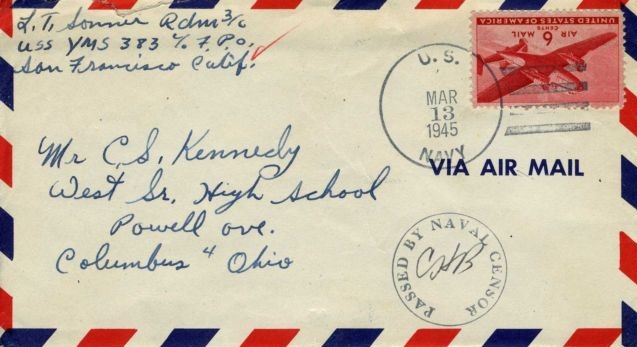 L.T. Sonner Rdm 3/c
USS YMS 383 c/o F.P.O.
San Francisco Calif.
UNITED STATES OF AMERICA
6 CENTS
AIR MAIL
U. S.
MAR
13
1945
NAVY
VIA AIR MAIL
Mr C. S. Kennedy
West Sr. High School
Powell ave.
Columbus 4 Ohio
PASSED BY NAVAL CENSOR
CHB